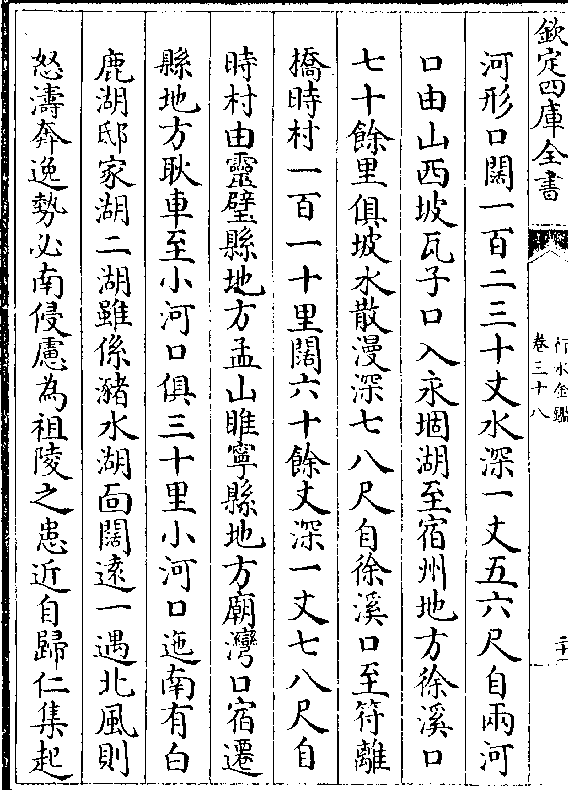 欽定四庫全書
行水金鑑
卷三十八
二十一
河形口闊一百二三十丈水深一丈五六尺自兩河
口由山西坡瓦子口入永堌湖至宿州地方徐溪口
七十餘里俱坡水散漫深七八尺自徐溪口至符離
橋時村一百一十里闊六十餘丈深一丈七八尺自
時村由靈璧縣地方孟山睢寧縣地方廟灣口宿遷
縣地方耿車至小河口俱三十里小河口迤南有白
鹿湖邸家湖二湖雖係瀦水湖面闊遠一遇北風則
怒濤奔逸勢必南侵慮為祖陵之患近自歸仁集起